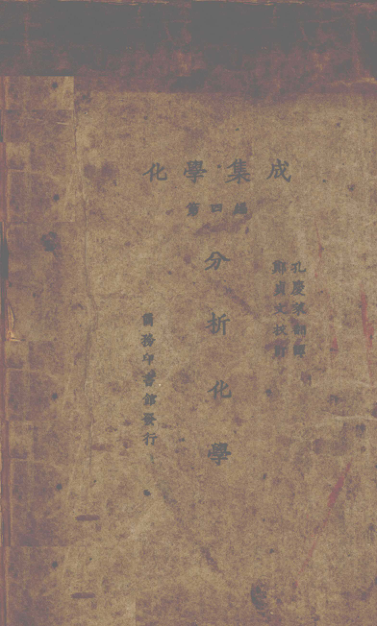 化學集成
第四編
分析化學
孔慶萊編譯
鄭貞文校訂
商務印書館發行